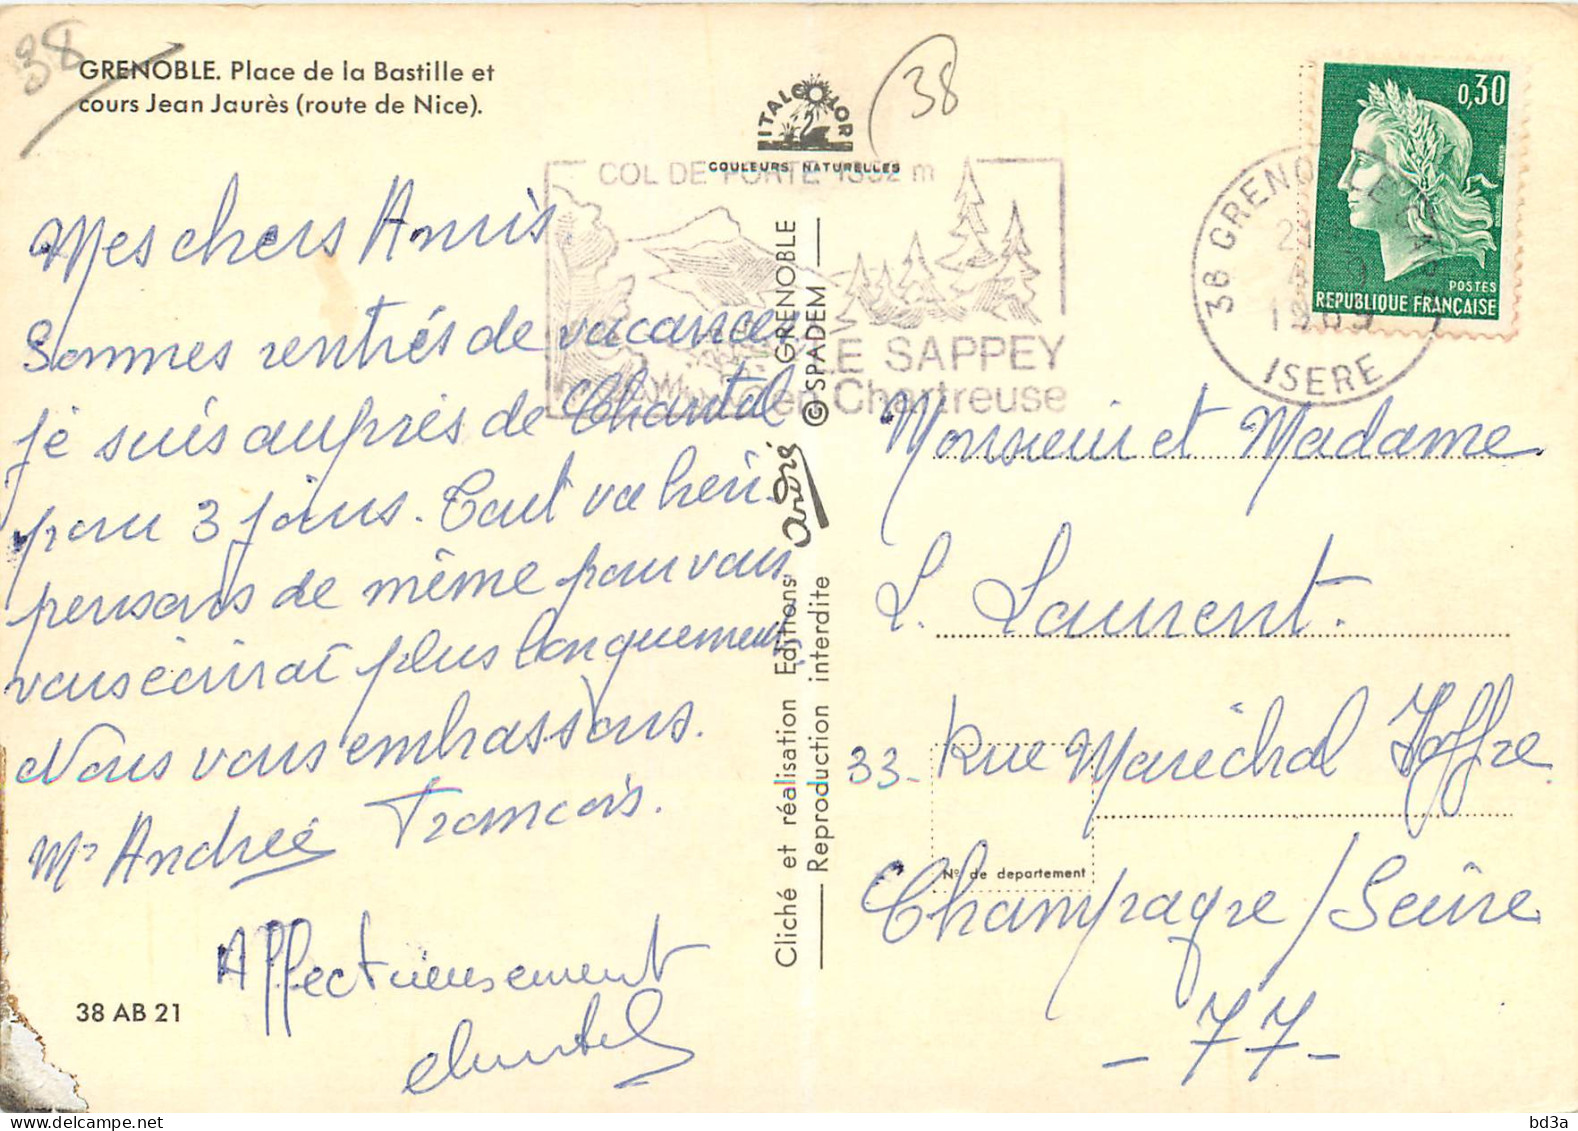 38
GRENOBLE. Place de la Bastille et
cours Jean Jaurès (route de Nice).
ITALCOLOR
COULEURS NATURELLES
38
COL DE PORTE 1352 m
LE SAPPEY
en Chartreuse
0,30
POSTES
REPUBLIQUE FRANÇAISE
38 GRENOBLE GARE
1969
ISERE
Mes chers Amis.
Sommes rentrés de vacances
je suis auprès de Chantal
pour 3 jours. Tout va bien
pensons de même pour vous
vous écrirai plus longuement
Nous vous embrassons.
Mr Andrée François.
Affectueusement
Chantal
38 AB 21
Cliché et réalisation Editions André GRENOBLE
Reproduction interdite © SPADEM
Monsieur et Madame
L. Laurent.
33- Rue Maréchal Joffre
Nº de departement
Champagne/Seine
- 77 -
bd3a